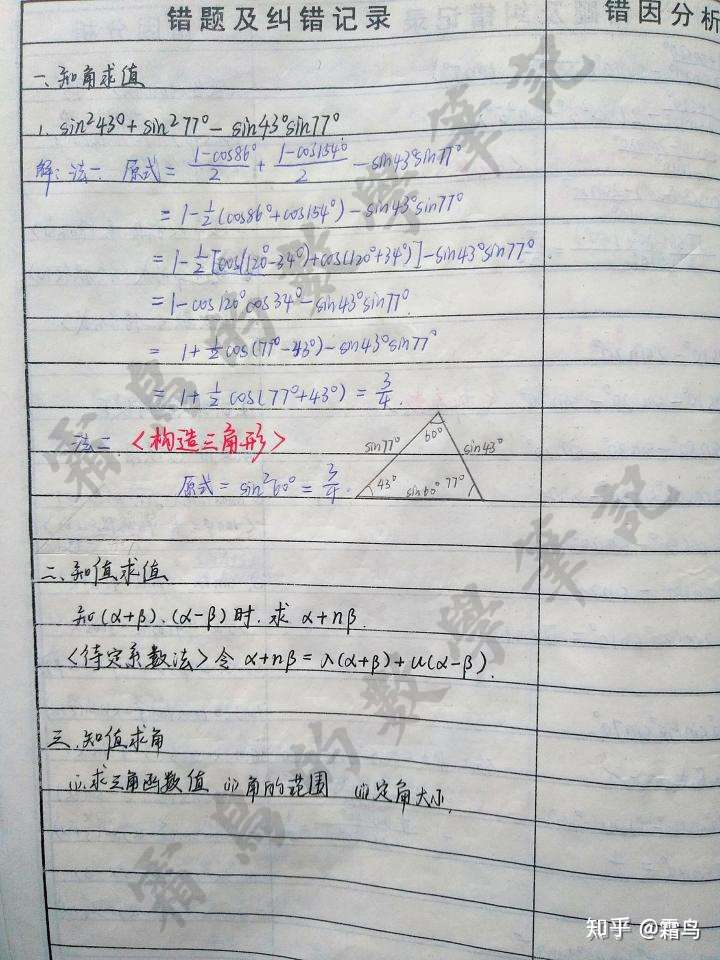 错题及纠错记录
错因分析
一、知角求值
1. sin²43°+sin²77°-sin43°sin77°.
解：法一：原式 = (1-cos86°)/2 + (1-cos154°)/2 - sin43°sin77°
= 1-½(cos86°+cos154°)-sin43°sin77°
= 1-½[cos(120°-34°)+cos(120°+34°)]-sin43°sin77°.
= 1-cos120°cos34°-sin43°sin77°.
= 1+½cos(77°-43°)-sin43°sin77°
= 1+½cos(77°+43°) = 3/4.
法二：〈构造三角形〉
原式 = sin²60° = 3/4.
sin77° 60° sin43°
43° sin60° 77°
二、知值求值
知(α+β).(α-β)时.求 α+nβ.
〈待定系数法〉令 α+nβ=λ(α+β)+u(α-β).
三、知值求角
(i)求三角函数值 (ii)角的范围 (iii)定角大小.
霜鸟的数學筆記
霜鸟的数學筆記
知乎 @霜鸟